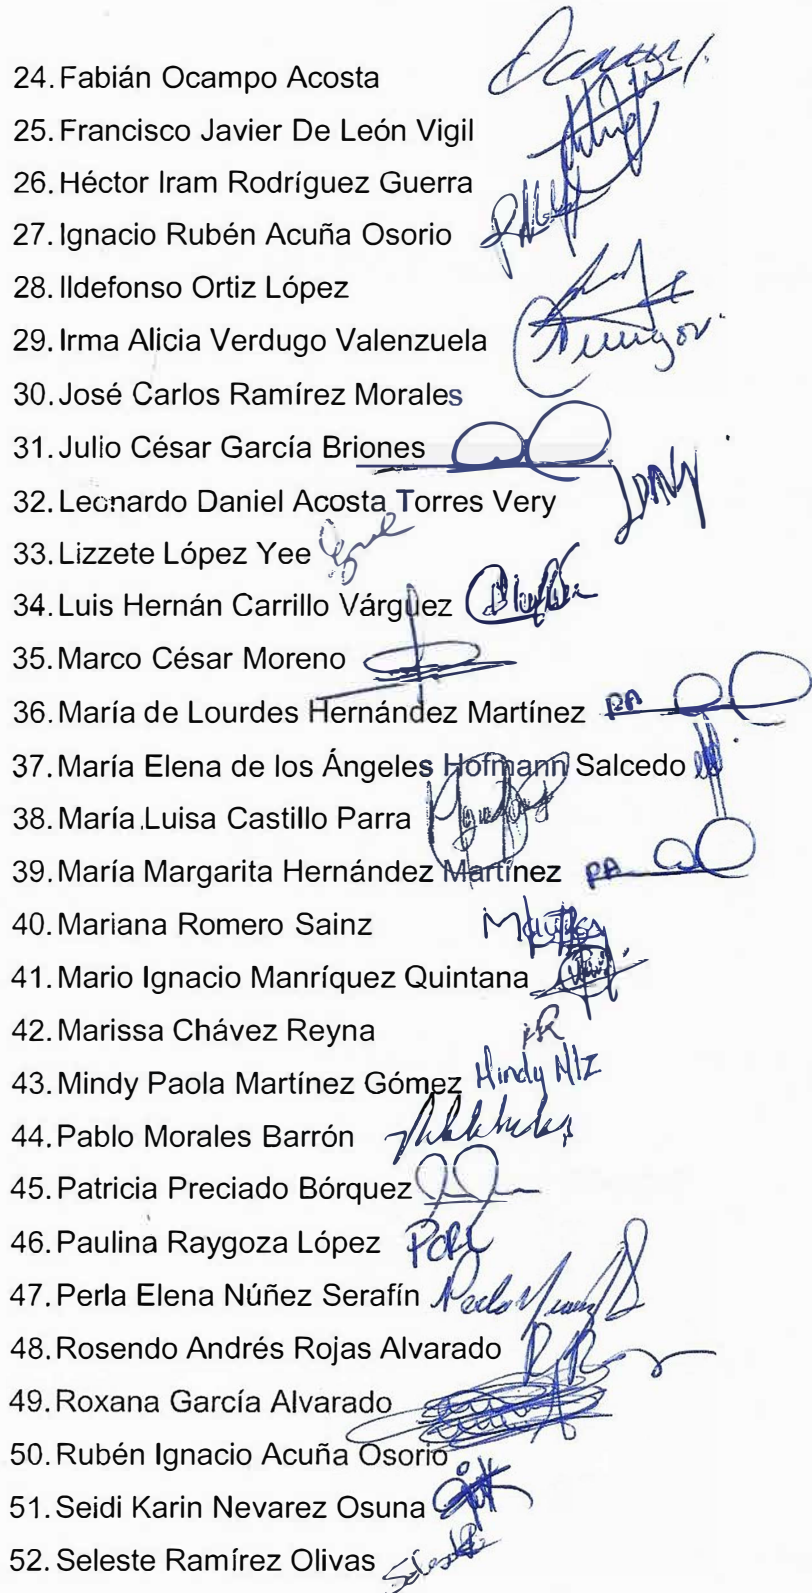 24. Fabián Ocampo Acosta
25. Francisco Javier De León Vigil
26. Héctor Iram Rodríguez Guerra
27. Ignacio Rubén Acuña Osorio
28. Ildefonso Ortiz López
29. Irma Alicia Verdugo Valenzuela
30. José Carlos Ramírez Morales
31. Julio César García Briones
32. Leonardo Daniel Acosta Torres Very
33. Lizzete López Yee
34. Luis Hernán Carrillo Várguez
35. Marco César Moreno
36. María de Lourdes Hernández Martínez PA
37. María Elena de los Ángeles Hofmann Salcedo
38. María Luisa Castillo Parra
39. María Margarita Hernández Martínez PA
40. Mariana Romero Sainz
41. Mario Ignacio Manríquez Quintana
42. Marissa Chávez Reyna
43. Mindy Paola Martínez Gómez Mindy
44. Pablo Morales Barrón
45. Patricia Preciado Bórquez
46. Paulina Raygoza López
47. Perla Elena Núñez Serafín
48. Rosendo Andrés Rojas Alvarado
49. Roxana García Alvarado
50. Rubén Ignacio Acuña Osorio
51. Seidi Karin Nevarez Osuna
52. Seleste Ramírez Olivas